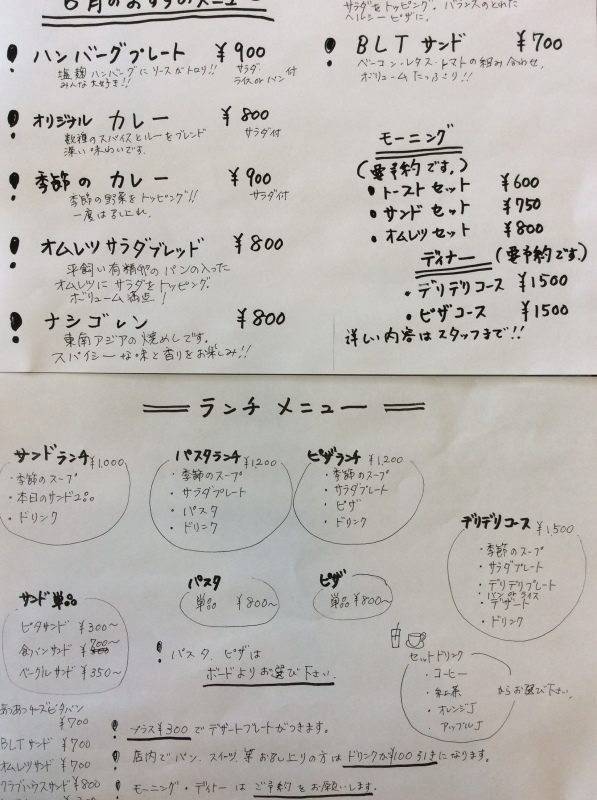 6月のおすすめメニュー
ハンバーグプレート ¥900
塩麹ハンバーグにソースがトロリ!! サラダ・
みんな大好き!! ライスorパン 付
オリジナル カレー ¥800
数種のスパイスとルーをブレンド サラダ付
深い味わいです。
季節の カレー ¥900
季節の野菜をトッピング!! サラダ付
一度は召し上れ。
オムレツサラダブレッド ¥800
平飼い有精卵のパンの入った
オムレツに サラダをトッピング。
ボリューム満点!
ナシゴレン ¥800
東南アジアの焼めしです。
スパイシーな味と香りをお楽しみ!!
サラダをトッピング。バランスのとれた
ヘルシーピザに。
BLTサンド ¥700
ベーコン・レタス・トマトの組み合わせ。
ボリュームたっぷり!!
モーニング
(要予約です。)
・トーストセット ¥600
・サンドセット ¥750
・オムレツセット ¥800
ディナー (要予約です。)
・デリデリコース ¥1500
・ピザコース ¥1500
詳しい内容はスタッフまで!!
ランチメニュー
サンドランチ ¥1,000
・季節のスープ
・本日のサンド2品
・ドリンク
パスタランチ ¥1200
・季節のスープ
・サラダプレート
・パスタ
・ドリンク
ピザランチ ¥1,200
・季節のスープ
・サラダプレート
・ピザ
・ドリンク
デリデリコース ¥1,500
・季節のスープ
・サラダプレート
・デリデリプレート
パンorライス
・デザート
・ドリンク
サンド単品
ピタサンド ¥300〜
食パンサンド 700〜
ベーグルサンド ¥350〜
パスタ
単品 ¥800〜
ピザ
単品 ¥800〜
! パスタ、ピザは
ボードよりお選び下さい。
セットドリンク
・コーヒー
・紅茶
・オレンジJ
・アップルJ
からお選び下さい。
あつあつチーズピタパン
¥700
BLTサンド ¥700
オムレツサンド ¥700
クラブハウスサンド ¥800
! プラス¥300でデザートプレートがつきます。
! 店内でパン、スイーツ、等お召し上りの方はドリンクが¥100引きになります。
! モーニング・ディナーはご予約をお願いします。